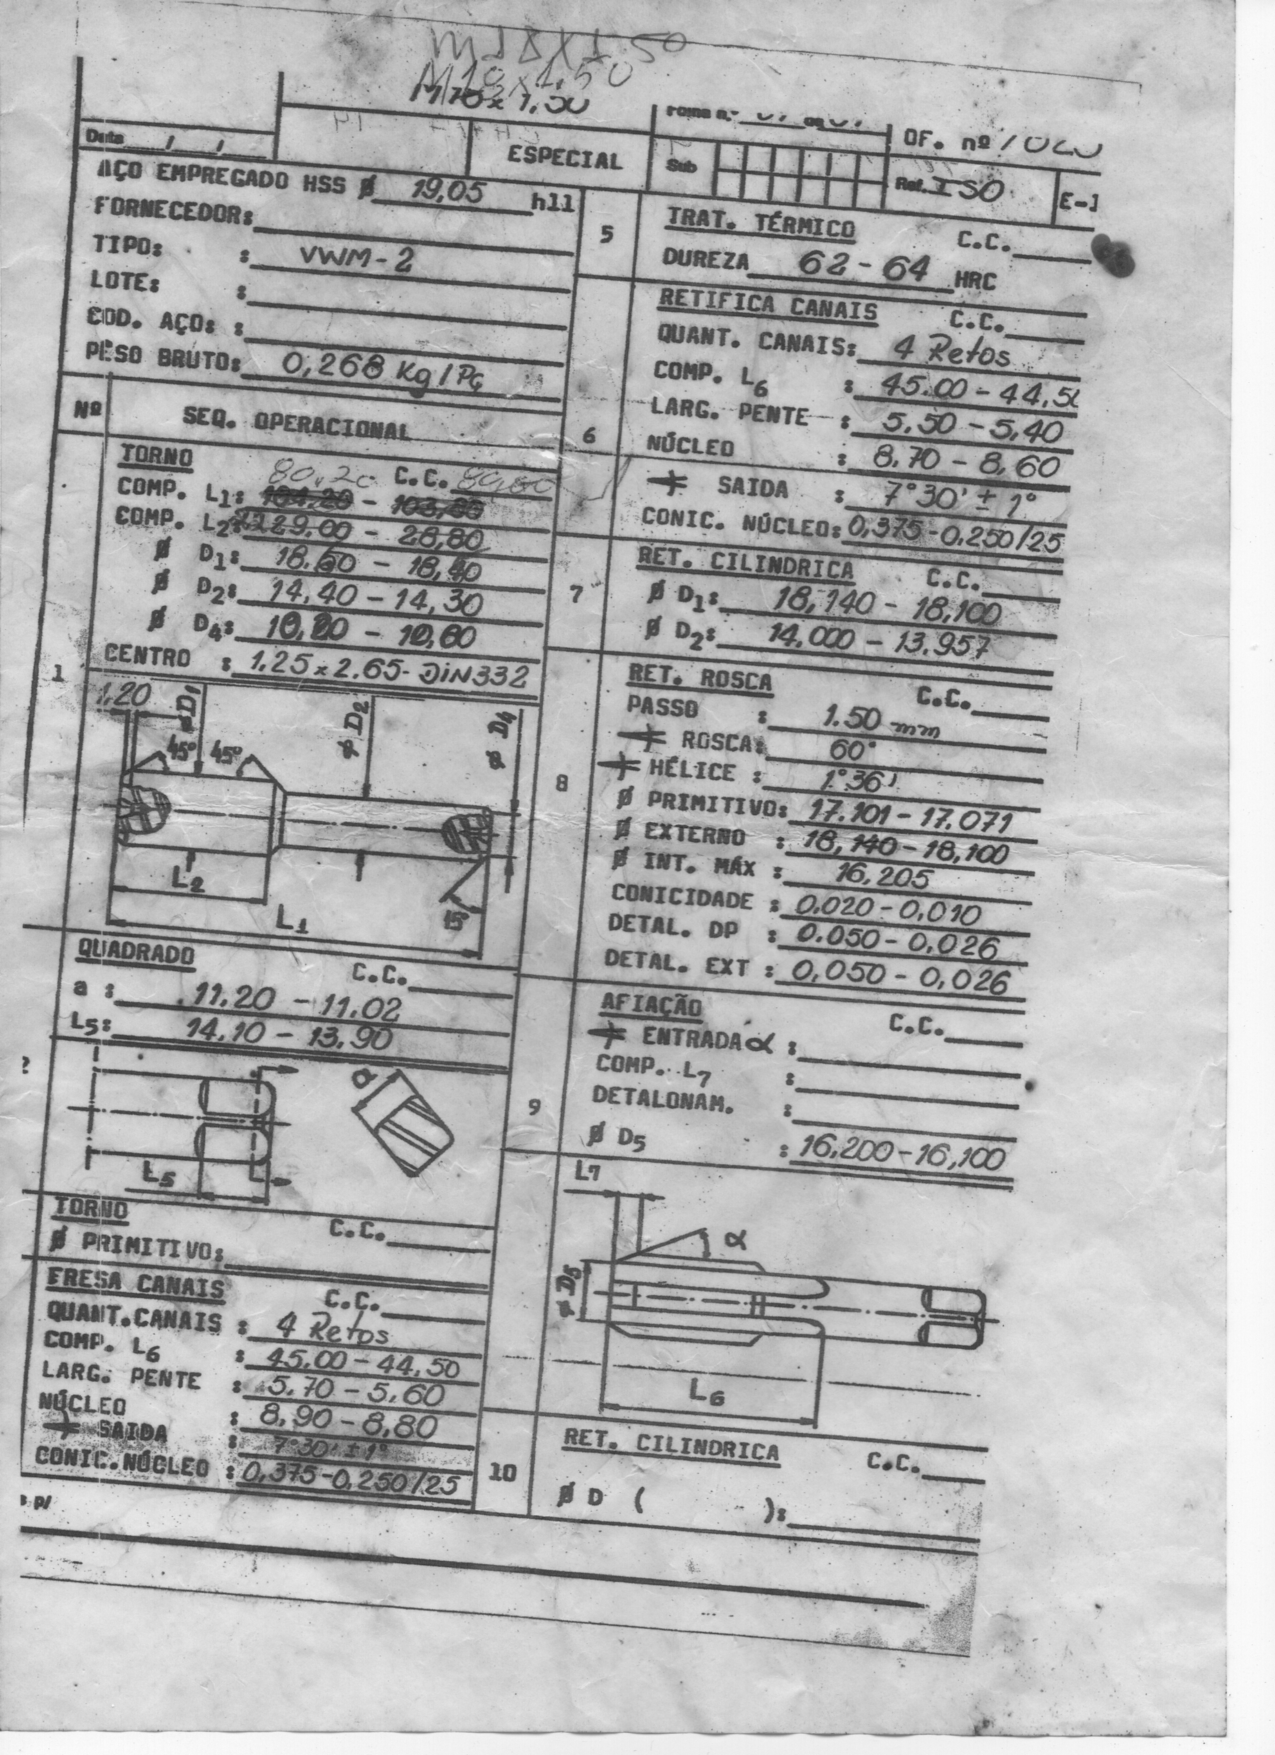 M18x1.50
M18x1.50
M18x1,50
Data / /
ESPECIAL
Sub
OF. nº
Ref. ISO
E-1
AÇO EMPREGADO HSS Ø 19,05 h11
FORNECEDOR:
TIPO: : VWM-2
LOTE: :
COD. AÇO: :
PESO BRUTO: 0,268 Kg/Pç
Nº SEQ. OPERACIONAL
1
TORNO C.C.
80,20
COMP. L1: 104,20 - 103,80
COMP. L2: 29,00 - 28,80
Ø D1: 18,60 - 18,40
Ø D2: 14,40 - 14,30
Ø D4: 10,80 - 10,60
CENTRO : 1.25x2.65-DIN332
1,20
ØD1
Ø D2
Ø D4
45° 45°
L2
L1
15°
2
QUADRADO C.C.
a : 11.20 - 11.02
L5: 14.10 - 13.90
a
L5
TORNO C.C.
Ø PRIMITIVO:
FRESA CANAIS C.C.
QUANT.CANAIS : 4 Retos
COMP. L6 : 45.00-44,50
LARG. PENTE : 5.70-5,60
NÚCLEO : 8,90-8,80
∢ SAIDA : 7°30' ± 1°
CONIC.NÚCLEO : 0,375-0,250/25
P/
5
TRAT. TÉRMICO C.C.
DUREZA 62-64 HRC
6
RETIFICA CANAIS C.C.
QUANT. CANAIS: 4 Retos
COMP. L6 : 45.00-44,50
LARG. PENTE : 5,50-5,40
NÚCLEO : 8.70-8,60
∢ SAIDA : 7°30' ± 1°
CONIC. NÚCLEO: 0,375-0,250/25
7
RET. CILINDRICA C.C.
Ø D1: 18,140-18,100
Ø D2: 14.000-13.957
8
RET. ROSCA C.C.
PASSO : 1.50 mm
∢ ROSCA: 60°
∢ HÉLICE : 1°36'
Ø PRIMITIVO: 17.101-17.071
Ø EXTERNO : 18,140-18,100
Ø INT. MÁX : 16,205
CONICIDADE : 0.020-0,010
DETAL. DP : 0.050-0,026
DETAL. EXT : 0,050-0,026
9
AFIAÇÃO C.C.
∢ ENTRADA α :
COMP. L7 :
DETALONAM. :
Ø D5 : 16,200-16,100
L7
α
Ø D5
L6
10
RET. CILINDRICA C.C.
Ø D ( ):